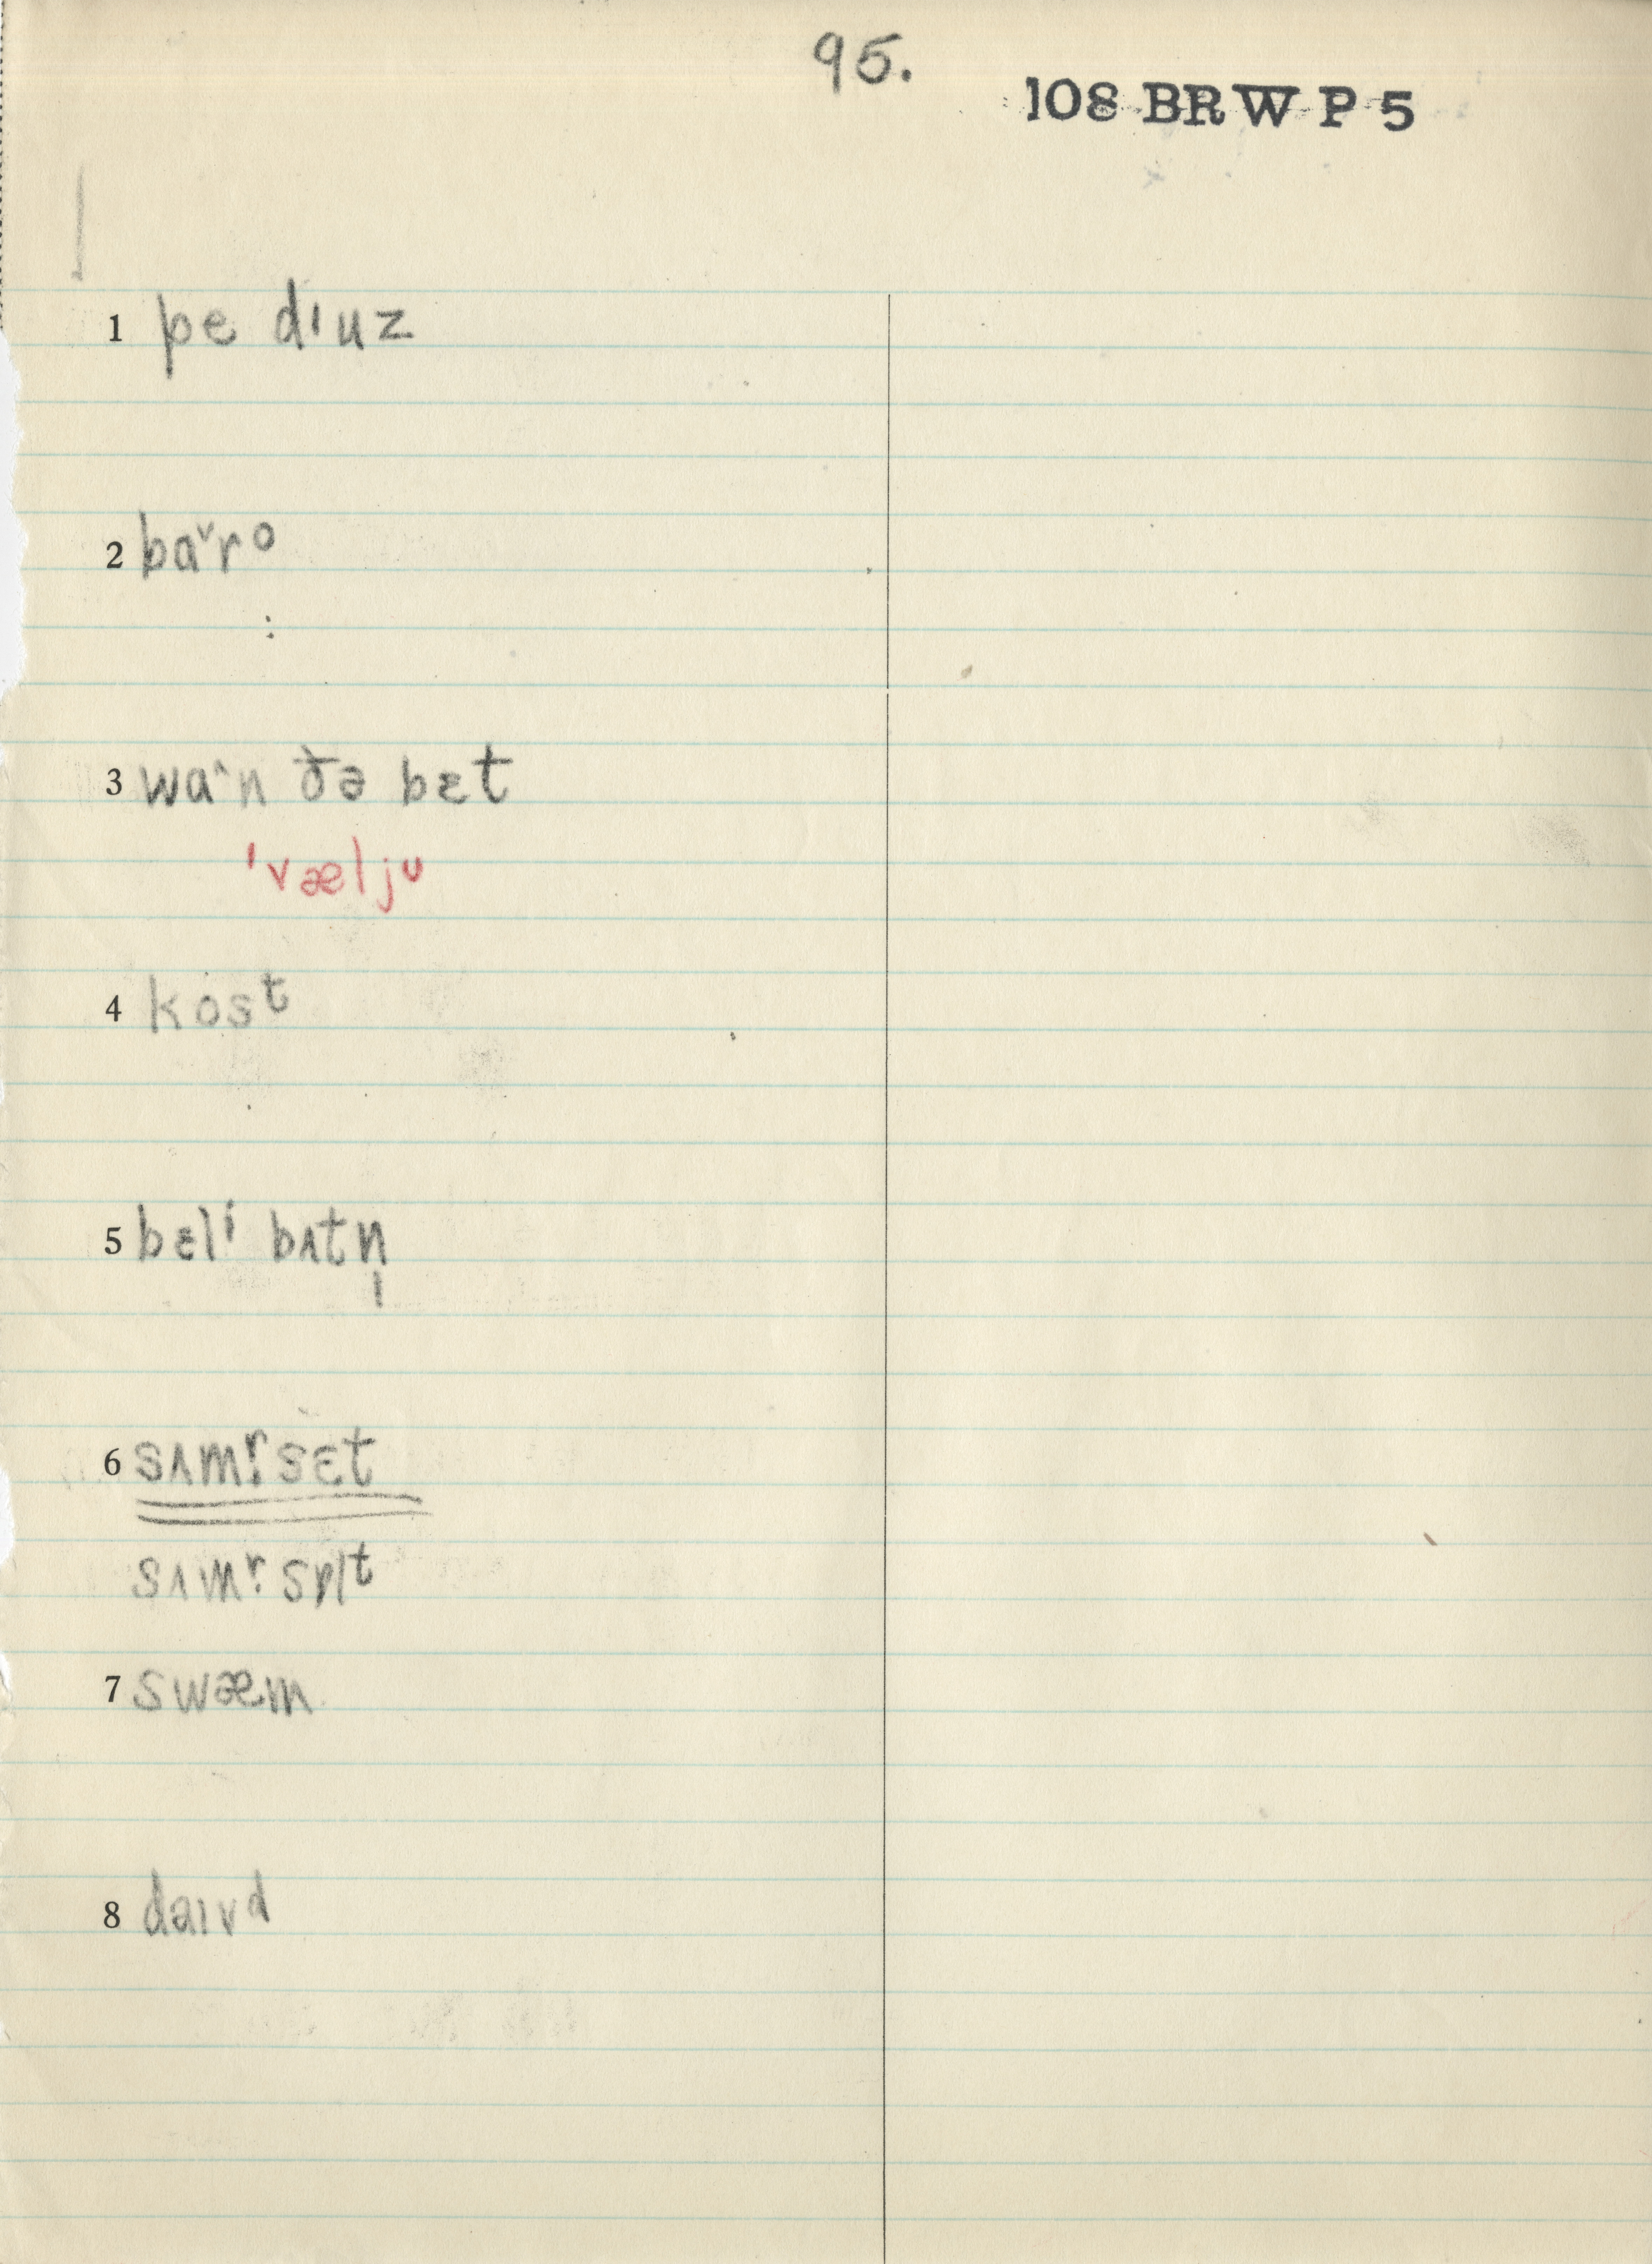 95.
108 BRW P 5
1 pe dɪuz
2 ba˅rº
3 wa˄n ðə bɛt
'væljʊ
4 kȯsᵗ
5 bɛlⁱ bʌtn̩
6 sʌmʳ̣sɛt
sʌmʳ̣
7 swæm
8 daɪvᵈ